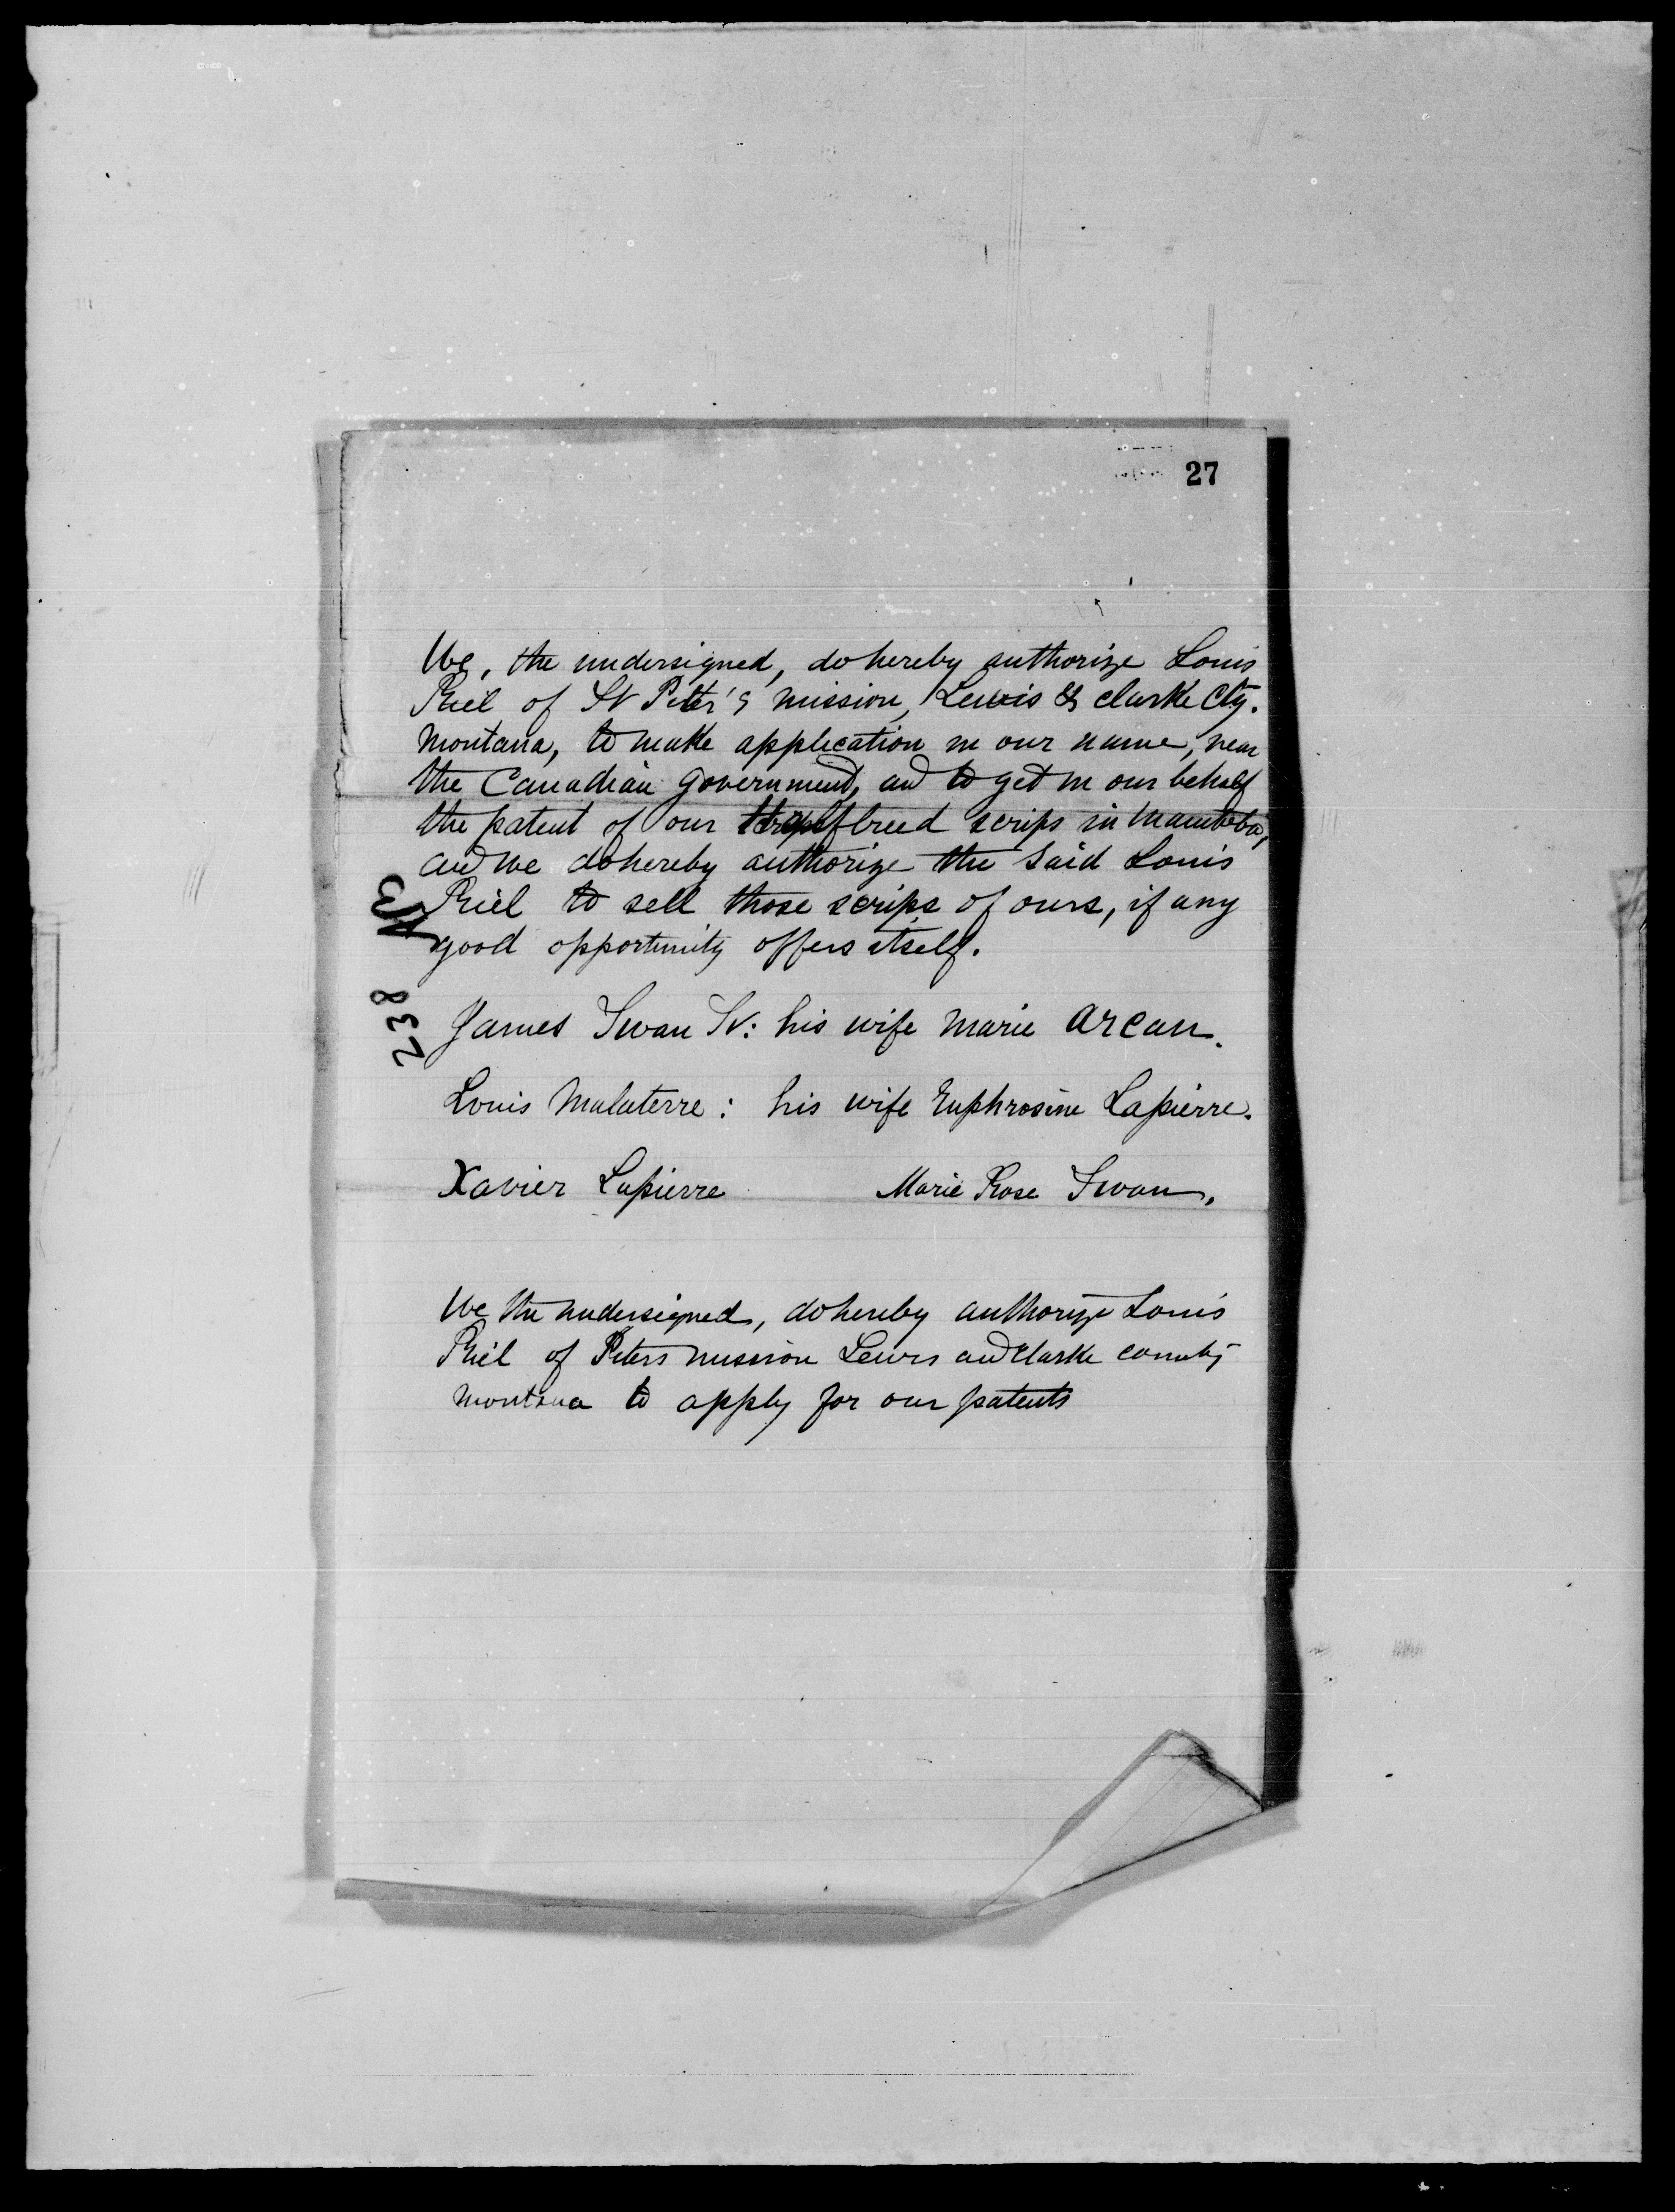 27
We, the undersigned, do hereby authorize Louis
Riel of St Peter's mission, Lewis & clarke Cty.
Montana, to make application in our name, near
the Canadian government, and to get in our behalf
the patent of our halfbreed scrips in Manitoba,
and we do hereby authorize the said Louis
Riel to sell those scrips of ours, if any
good opportunity offers itself.
238
James Swan Sr: his wife Marie Arcan.
Louis Malaterre: his wife Euphrosine Lapierre.
Xavier Lapierre Marie Rose Swan.
We the undersigned, do hereby authorize Louis
Riel of Peters mission Lewis and Clarke county
Montana to apply for our patents